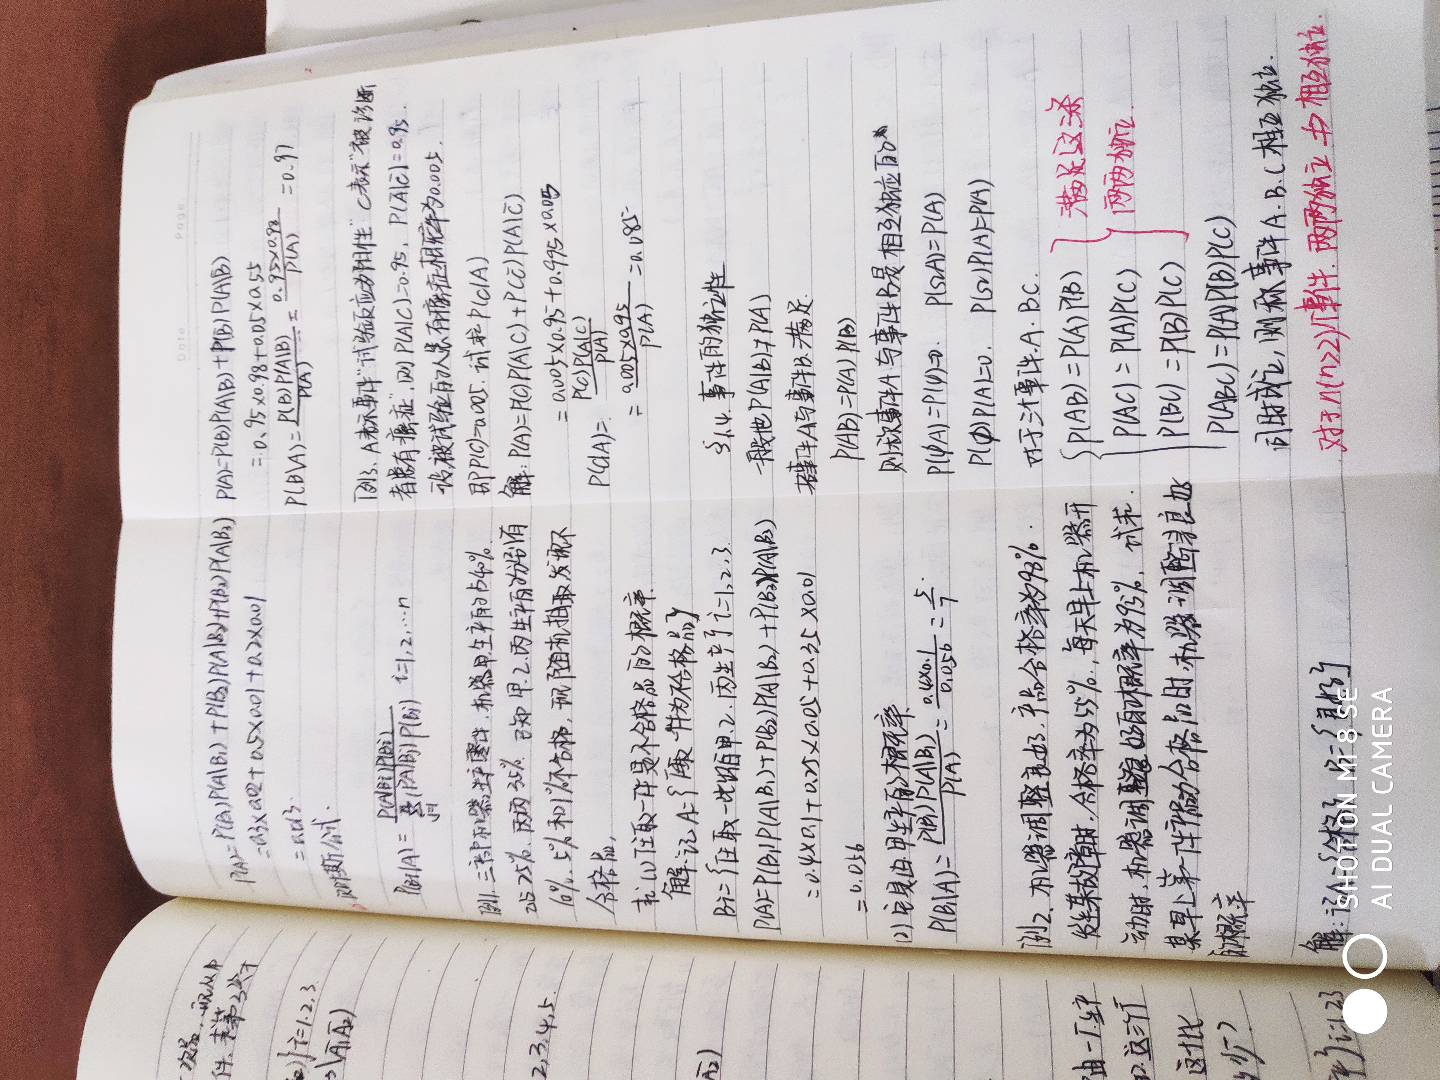 次品,现从中
件,若第3次才
)}i=1,2,3
2,3,4,5.
由一厂生产
这三个厂
这批
多少?
P(A)=P(B₁)P(A|B₁)+P(B₂)P(A|B₂)+P(B₃)P(A|B₃)
=0.3×0.02+0.5×0.01+0.2×0.01
=0.013.
贝叶斯公式.
P(Bi|A)= P(A|Bi)P(Bi) / Σ(P(A|Bj)P(Bj) i=1,2,…n
j=1
例1.三台机器生产零件,机器甲生产的占40%.
乙占25%.丙丙35%.已知甲.乙.丙生产的分别有
10%.5%和1%不合格,现随机抽取发现不
合格品,
求(1)任取一件是不合格品的概率.
解:记A={任取一件为不合格品}
Bi={任取一此品由甲.乙.丙生产} i=1,2,3.
P(A)=P(B₁)P(A|B₁)+P(B₂)P(A|B₂)+P(B₃)P(A|B₃)
=0.4×0.1+0.25×0.05+0.35×0.01
=0.056
(2)它是由甲生产的概率
P(B₁|A)= P(B₁)P(A|B₁) / P(A) = 0.4×0.1 / 0.056 = 5/7.
例2.机器调整良好,产品合格率为98%.
发生某故障时.合格率为55%.每天早上机器开
动时,机器调整良好的概率为95%,试求.
某早上第一件产品为合格品时.机器调整得良好
的概率
解:记A={合格} B={良好}
Date Page
P(A)=P(B)P(A|B)+P(B̄)P(A|B̄)
=0.95×0.98+0.05×0.55
P(B|A)= P(B)P(A|B) / P(A) = 0.95×0.98 / P(A) =0.97
例3.A表示事件"试验反应为阳性" C表示"被诊断
者患有癌症",则P(A|C)=0.95, P(Ā|C̄)=0.95.
设被试验的人患有癌症概率为0.005.
即P(C)=0.005.试求P(C|A)
解:P(A)=P(C)P(A|C)+P(C̄)P(A|C̄)
=0.005×0.95+0.995×0.05
P(C|A)= P(C)P(A|C) / P(A)
= 0.005×0.95 / P(A) =0.085
§1.4.事件的独立性
一般地P(A|B)≠P(A)
若事件A与事件B.满足.
P(AB)=P(A)P(B)
则称事件A与事件B是相互独立的
P(φA)=P(φ)=0. P(ΩA)=P(A)
P(φ)P(A)=0. P(Ω)P(A)=P(A)
对于三个事件.A.B C.
P(AB)=P(A)P(B) 满足这三条
P(AC)=P(A)P(C) 两两独立.
P(BC)=P(B)P(C)
P(ABC)=P(A)P(B)P(C)
同时成立,则称事件A.B.C相互独立.
对于n(n>2)个事件.两两独立⇏相互独立.
SHOT ON MI 8 SE
AI DUAL CAMERA